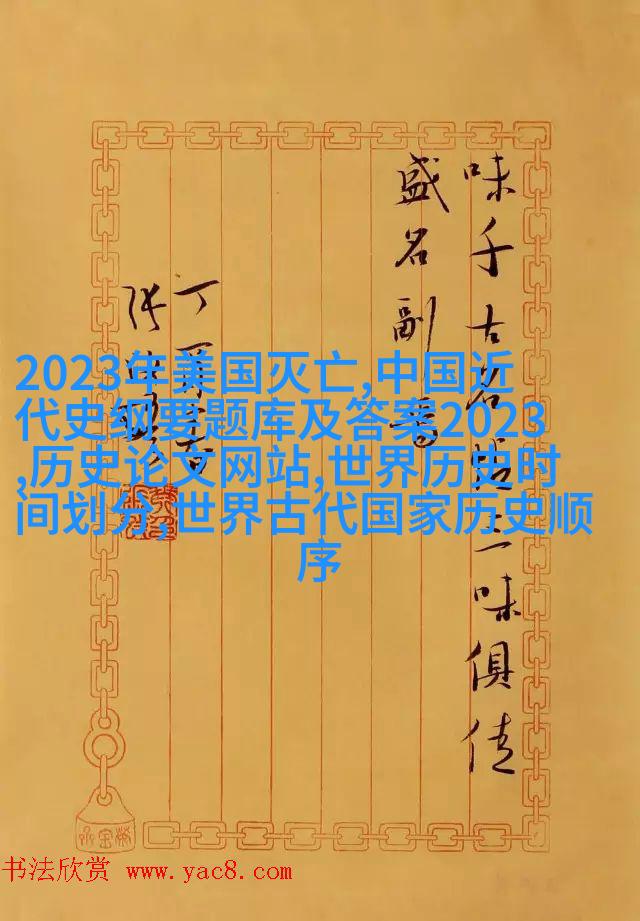 味千古名胜三一味俱佳
盛名副
丁
2023年美国灭亡,中国近
代史纲要题库及答案2023
,历史论文网站,世界历史时
间划分,世界古代国家历史顺
序
书法欣赏 www.yac8.com